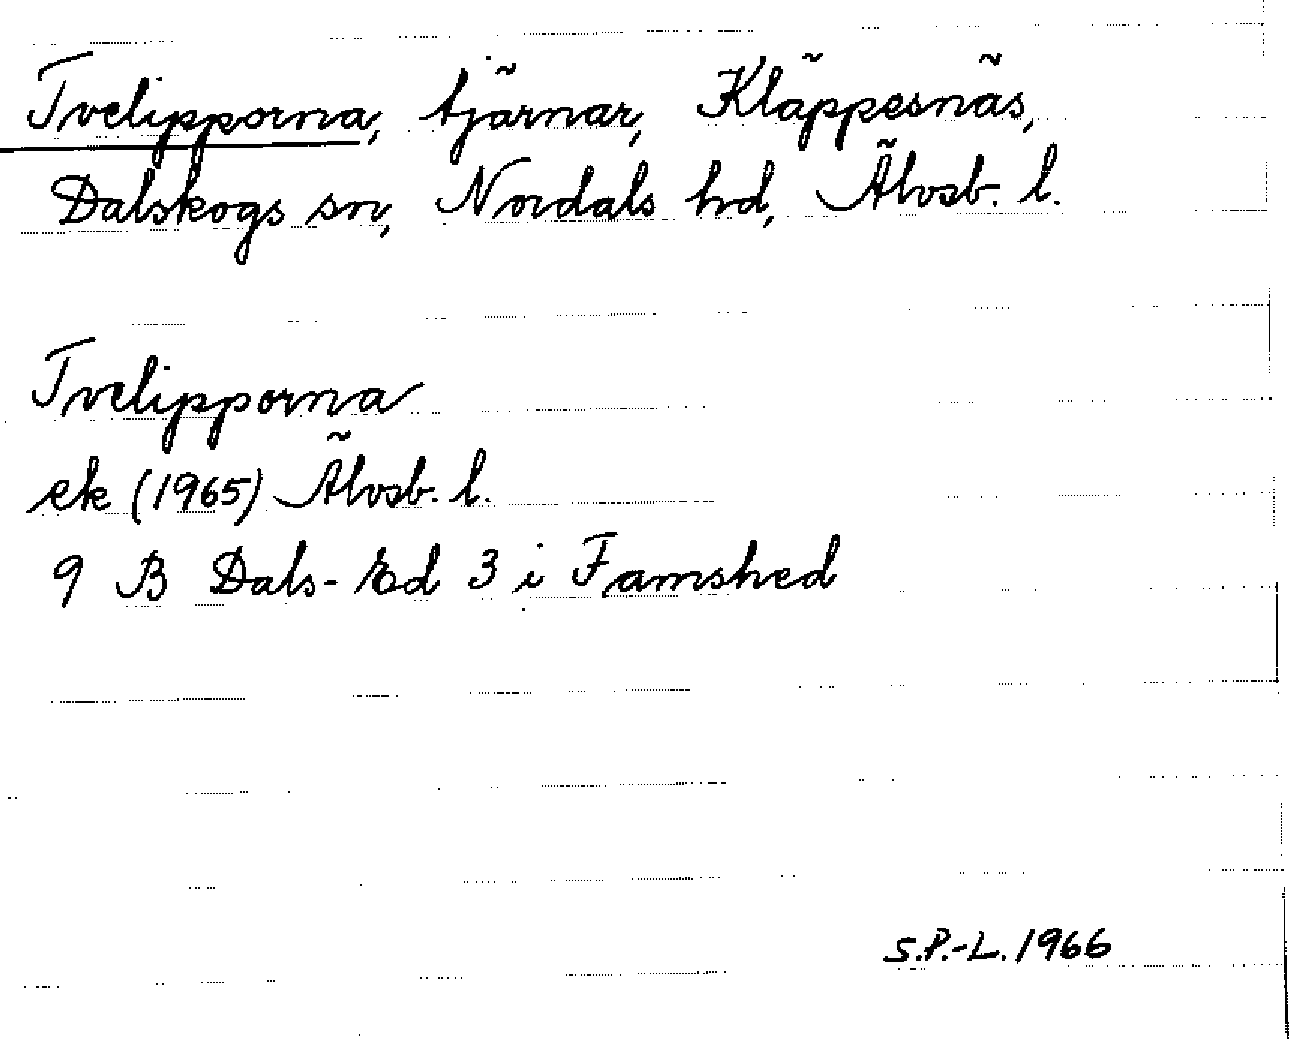 Tvelipporna, tjärnar, Kläppesnäs,
Dalskogs sn, Nordals hd, Älvsb. l.
Tvelipporna
ek (1965) Älvsb. l.
9 B Dals-Ed 3 i Famshed
S.P.-L. 1966